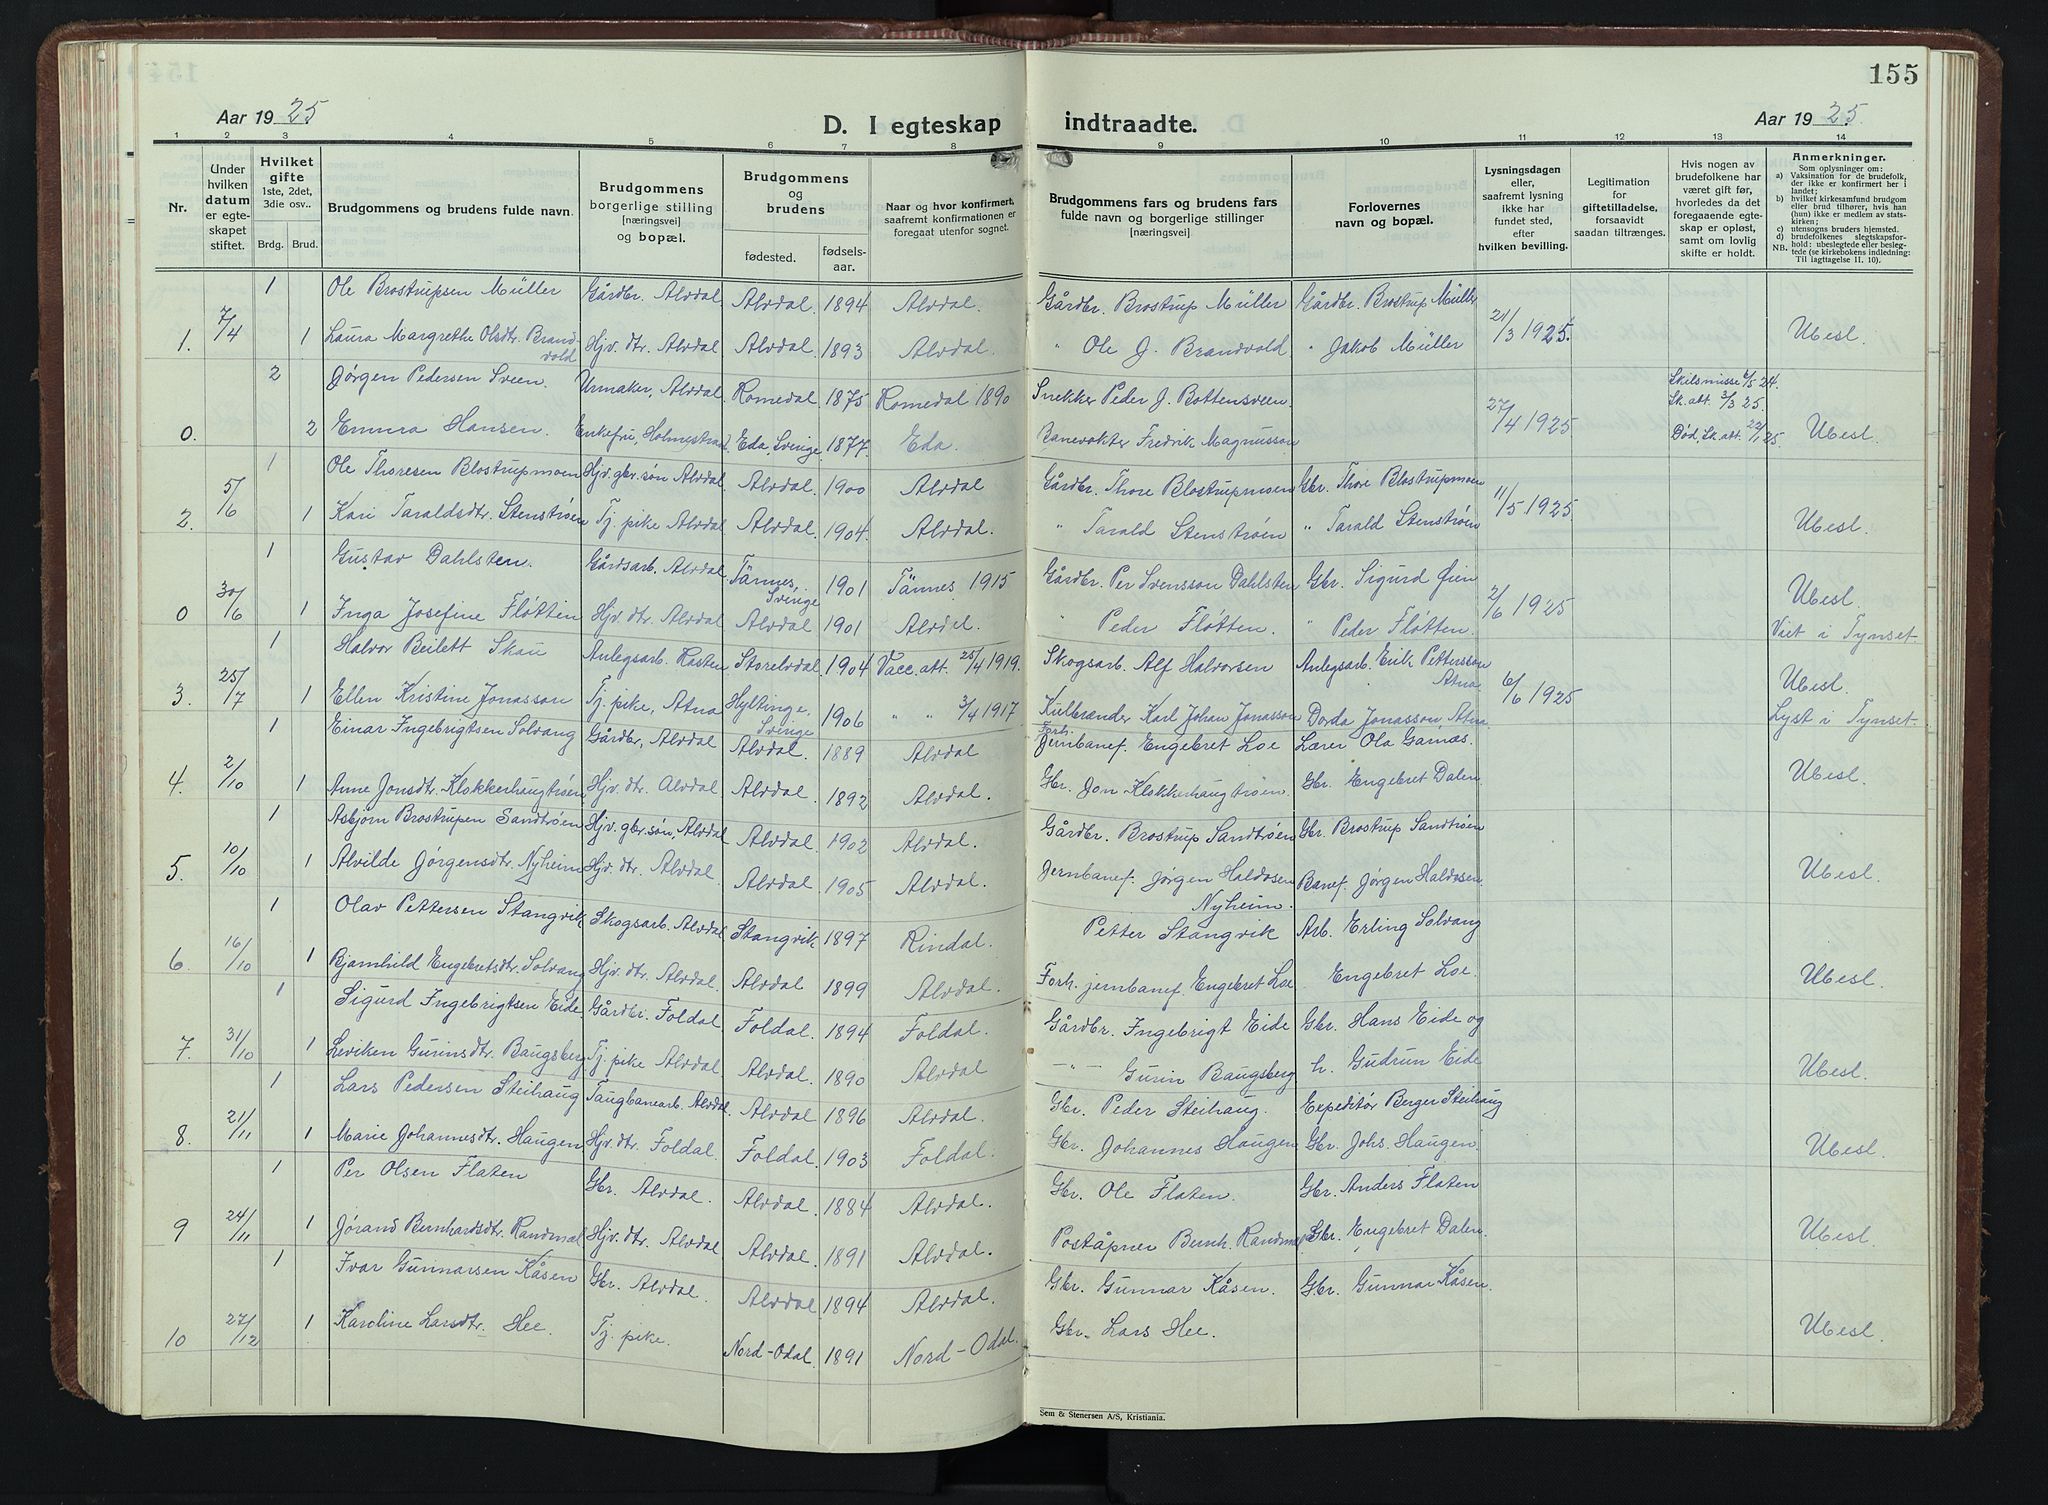 155
Aar 1925
D. I egteskap indtraadte.
Aar 1925.
1 2 3 4 5 6 7 8 9 10 11 12 13 14
Nr.
Under hvilken datum er egteskapet stiftet.
Hvilket gifte 1ste, 2det, 3die osv..
Brdg. Brud.
Brudgommens og brudens fulde navn.
Brudgommens borgerlige stilling [næringsvei] og bopæl.
Brudgommens og brudens
fødested.
fødselsaar.
Naar og hvor konfirmert, saafremt konfirmationen er foregaat utenfor sognet.
Brudgommens fars og brudens fars fulde navn og borgerlige stillinger [næringsvei]
Forlovernes navn og bopæl.
Lysningsdagen eller, saafremt lysning ikke har fundet sted, efter hvilken bevilling.
Legitimation for giftetilladelse, forsaavidt saadan tiltrænges.
Hvis nogen av brudefolkene har været gift før, hvorledes da det foregaaende egteskap er opløst, samt om lovlig skifte er holdt.
Anmerkninger.
Som oplysning om:
a) Vaksination for de brudefolk, der ikke er konfirmert her i landet;
b) hvilket kirkesamfund brudgom eller brud tilhører, hvis han (hun) ikke er medlem av statskirken;
c) utensogns bruders hjemsted.
d) brudefolkenes slegtskapsforhold: ubeslegtede eller beslegtede (se kirkebokens indledning:
NB. Til Iagttagelse II. 10).
1 Ole Brostrupsen Müller Gårdbr. Alvdal Alvdal. 1894 Alvdal. Gårdbr. Brostrup Müller Gårdbr. Brostrup Müller
1. 7/4 1 Laura Margrethe Olsdtr. Brandvold Hjv. dtr. Alvdal Alvdal. 1893 Alvdal. " Ole J. Brandvold. " Jakob Müller 21/3 1925. Ubesl.
2 Jørgen Pedersen Sveen. Urmaker, Alvdal Romedal 1875 Romedal 1890 Snekker Peder J. Bottensveen. Skilsmisse 6/5 24. Sk. att. 3/3 25.
0. 2 Emma Hansen. Enkefru, Holmestrand Eda, Sverige 1877. Eda. Banevokter Fredrik Magnusson 27/4 1925 Død, Sk. att. 22/1 25 Ubesl.
1 Ole Thoresen Blostrupmoen Hjv. gbr. søn Alvdal Alvdal 1900 Alvdal Gårdbr. Thore Blostrupmoen Gbr. Thore Blostrupmoen
2. 5/6 1 Kari Taraldsdtr. Stenstrøen Tj. pike Alvdal Alvdal 1904. Alvdal. " Tarald Stenstrøen " Tarald Stenstrøen 11/5 1925 Ubesl.
1 Gustav Dahlsten. Gårdsarb. Alvdal Tännes, Sverige 1901 Tännes 1915 Gårdbr. Per Svensson Dahlsten Gbr. Sigurd Øien
0 30/6 1 Inga Josefine Fløtten Hjv. dtr. Alvdal Alvdal 1901 Alvdal. " Peder Fløtten. " Peder Fløtten. 2/6 1925 Ubesl. Viet i Tynset.
1 Halvor Beilett Skau Anlegsarb. Rasten Storelvdal 1904 Vacc. att. 25/4 1919. Skogsarb. Alf Halvorsen Anlegsarb. Erik Pettersson Atna
3. 25/7 1 Ellen Kristine Jonasson Tj. pike, Atna Hyltinge, Sverige 1906 " " 3/4 1917 Kulbrænder Karl Johan Jonasson Dorda Jonasson Atna 6/6 1925 Ubesl. Lyst i Tynset.
1 Einar Ingebrigtsen Solvang Gårdbr, Alvdal Alvdal. 1889 Alvdal Forh. Jernbanef. Engebret Loe Lærer Ola Garnæs.
4. 2/10 1 Anne Jonsdtr. Klokkerhaugtrøen Hjv. dtr. Alvdal Alvdal. 1892 Alvdal. Gbr. Jon Klokkerhaugtrøen. Gbr. Engebret Dalen Ubesl.
1 Asbjørn Brostrupen Sandtrøen Hjv. gbr. søn, Alvdal Alvdal. 1902 Alvdal. Gårdbr. Brostrup Sandtrøen Gbr. Brostrup Sandtrøen
5. 10/10 1 Alvilde Jørgensdtr. Nyheim Hjv. dtr. Alvdal. Alvdal. 1905 Alvdal. Jernbanef. Jørgen Haldosen Nyheim. Banef. Jørgen Haldosen. Ubesl.
1 Olav Pettersen Stangvik Skogsarb. Alvdal Stangvik 1897 Rindal. Petter Stangvik Arb. Erling Solvang
6. 16/10 1 Bjarnhild Engebretsdtr. Solvang Hjv. dtr. Alvdal. Alvdal 1899 Alvdal. Forh. jernbanef. Engebret Loe Engebret Loe. Ubesl.
1 Sigurd Ingebrigtsen Eide Gårdbr. Foldal Foldal. 1894 Foldal. Gårdbr. Ingebrigt Eide Gbr. Hans Eide og
7. 31/10 1 Leviken Gurinsdtr. Baugsberg Tj. pike Alvdal. Alvdal. 1890 Alvdal —"— Gurin Baugsberg h. Gudrun Eide Ubesl.
1 Lars Pedersen Steihaug Taugbanearb. Alvdal. Alvdal 1896 Alvdal. Gbr. Peder Steihaug. Expeditør Berger Steihaug
8. 21/11 1 Marie Johannesdtr. Haugen Hjv. dtr. Foldal. Foldal. 1903 Foldal. Gbr. Johannes Haugen Gbr. Johs. Haugen. Ubesl.
1 Per Olsen Flaten Gbr. Alvdal. Alvdal. 1884 Alvdal. Gbr. Ole Flaten. Gbr. Anders Flaten
9 24/11 1 Jørand Bernhardsdtr. Randmæl Hjv. dtr. Alvdal Alvdal. 1891 Alvdal. Poståpner Bernh. Randmæl Gbr. Engebret Dalen. Ubesl.
1 Ivar Gunnarsen Kåsen Gbr. Alvdal. Alvdal 1894 Alvdal. Gbr. Gunnar Kåsen. Gbr. Gunnar Kåsen.
10 27/12 1 Karoline Larsdtr. Hee. Tj. pike. Nord-Odal. 1891 Nord-Odal. Gbr. Lars Hee. Ubesl.
Sem & Stenersen A/S, Kristiania.